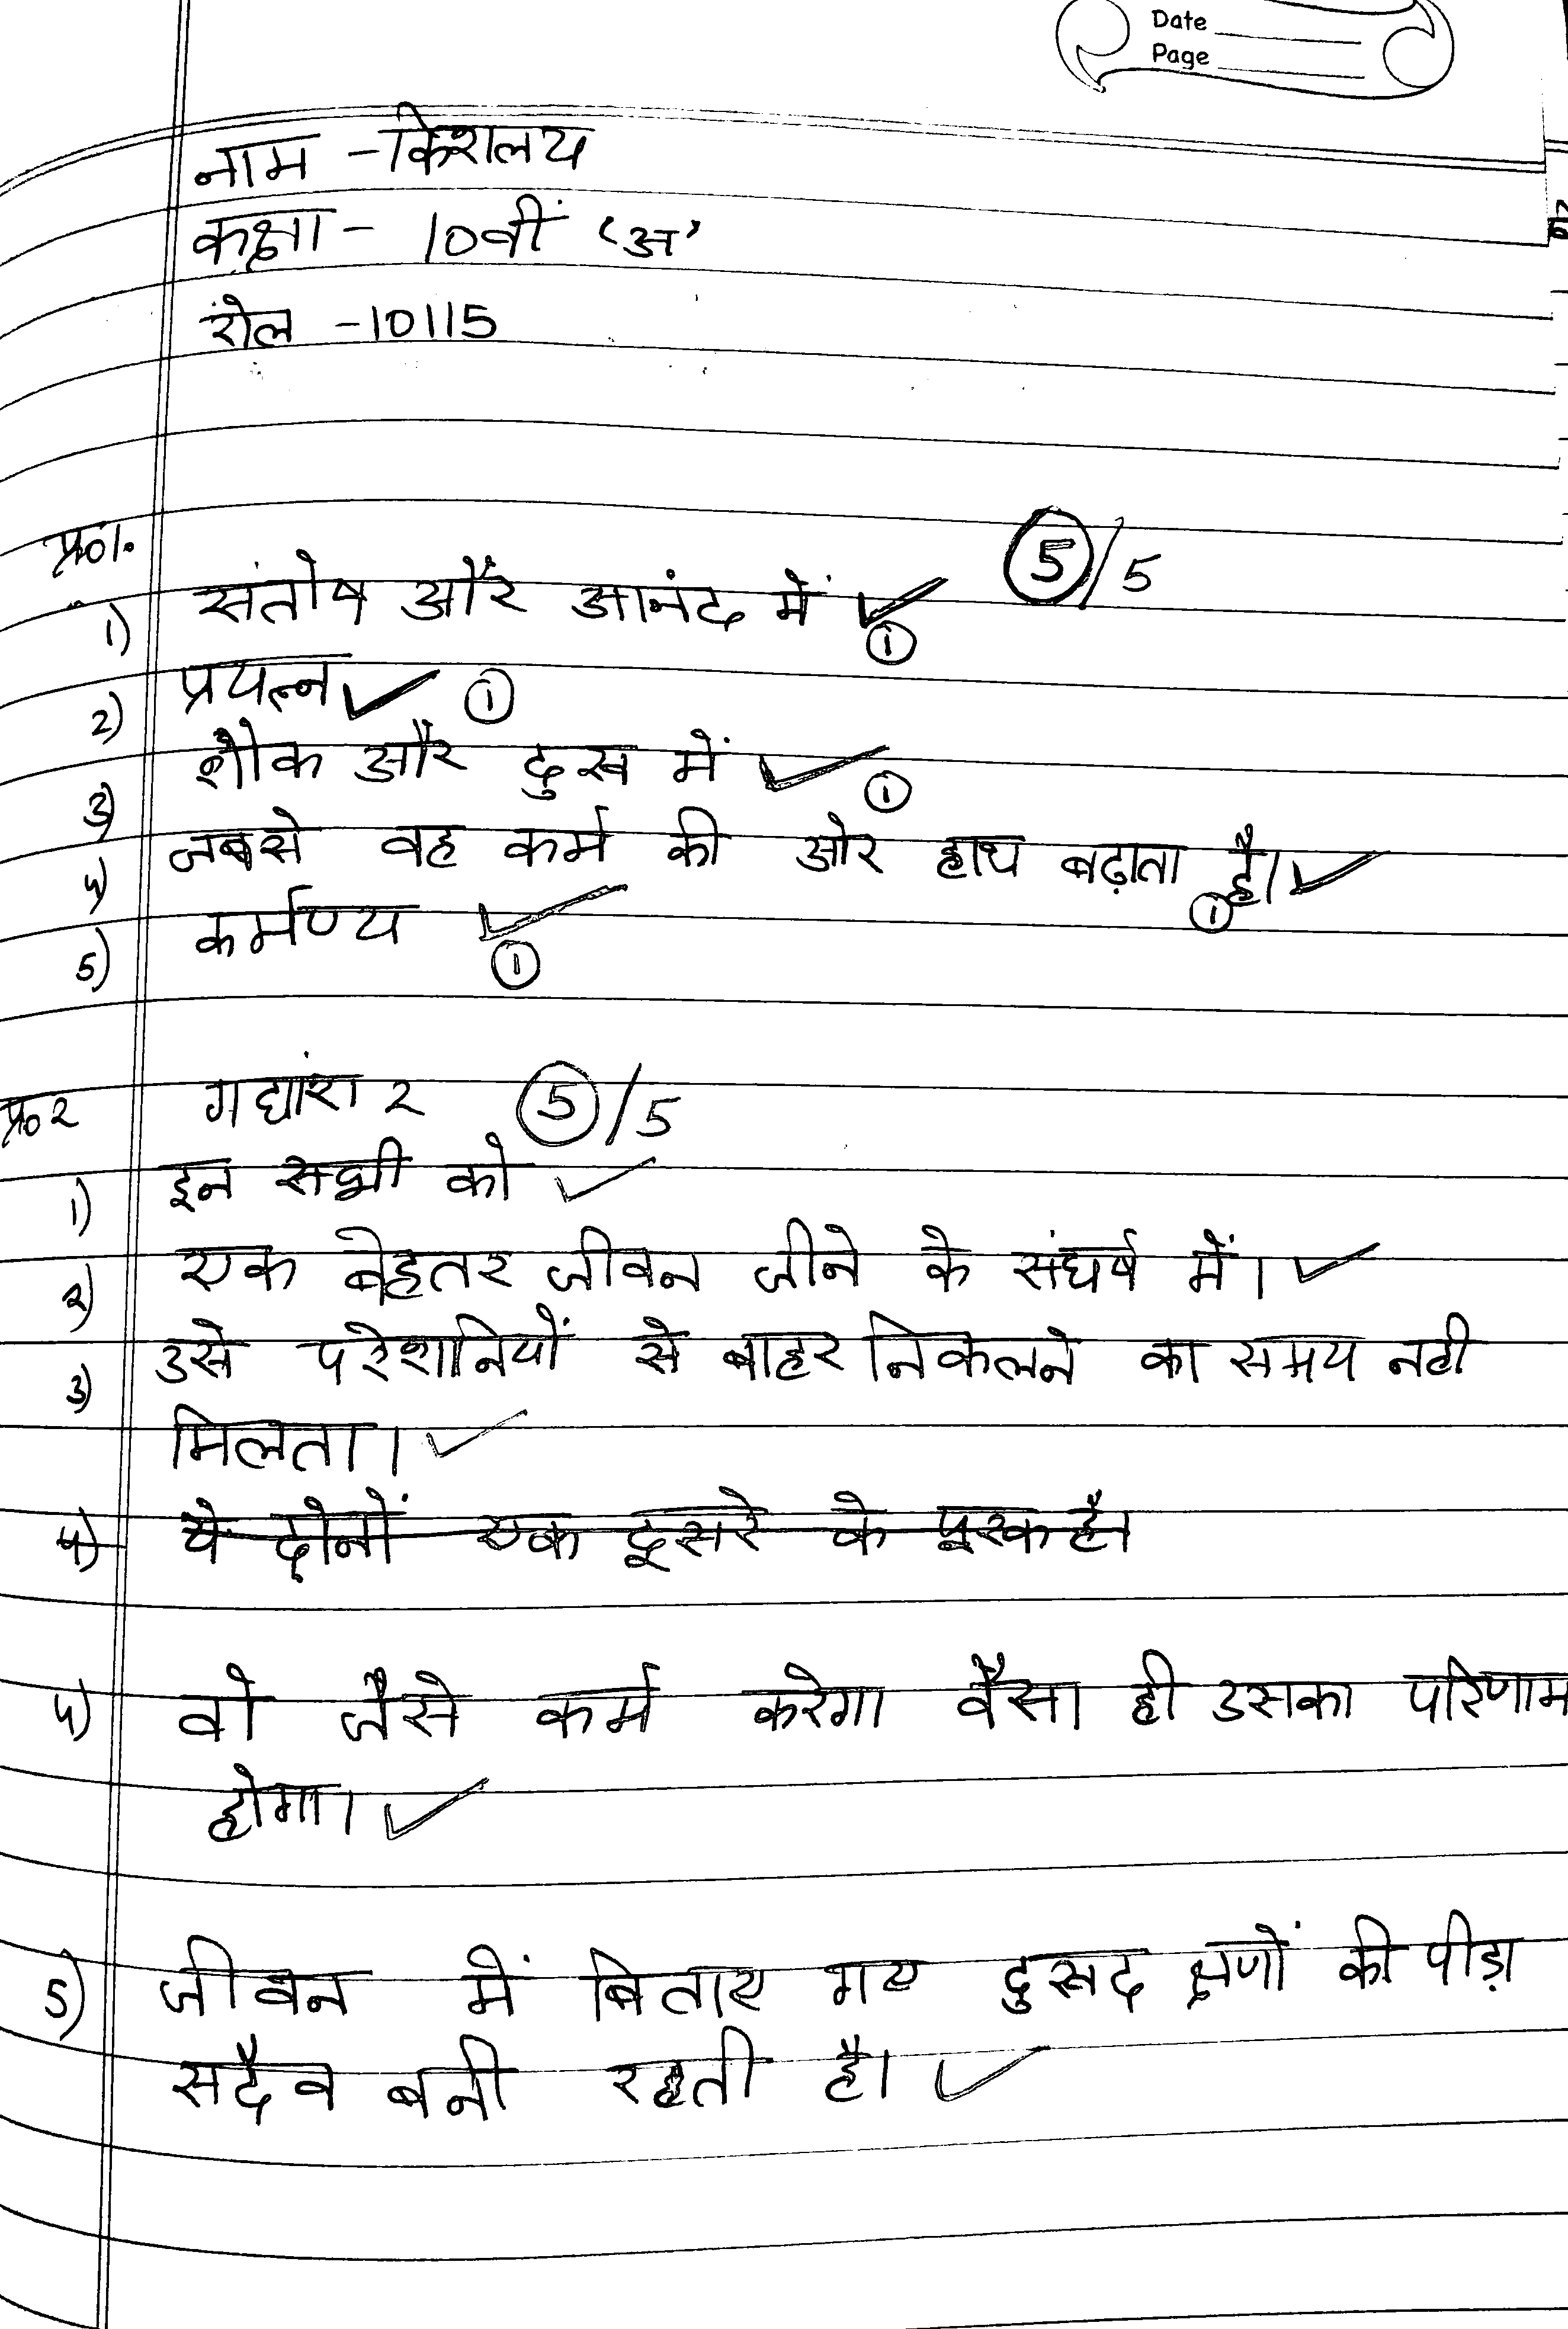 Date
Page
नाम - किशलय
कक्षा - 10वीं 'अ'
रोल - 10115
प्र०1.
5/5
1) संतोष और आनंद में ✓ 1
2) प्रयत्न ✓ 1
3) शौक और दुख में ✓ 1
4) जबसे वह कर्म की ओर हाथ बढ़ाता है। ✓ 1
5) कर्मण्य ✓ 1
प्र०2 गद्यांश 2 5/5
1) इन सभी को ✓
2) एक बेहतर जीवन जीने के संघर्ष में। ✓
3) उसे परेशानियों से बाहर निकलने का समय नही
मिलता। ✓
4) ये दोनों एक दूसरे के पूरक है।
4) वो जैसे कर्म करेगा वैसा ही उसका परिणाम
होगा। ✓
5) जीवन में बिताए गए दुखद क्षणों की पीड़ा
सदैव बनी रहती है। ✓